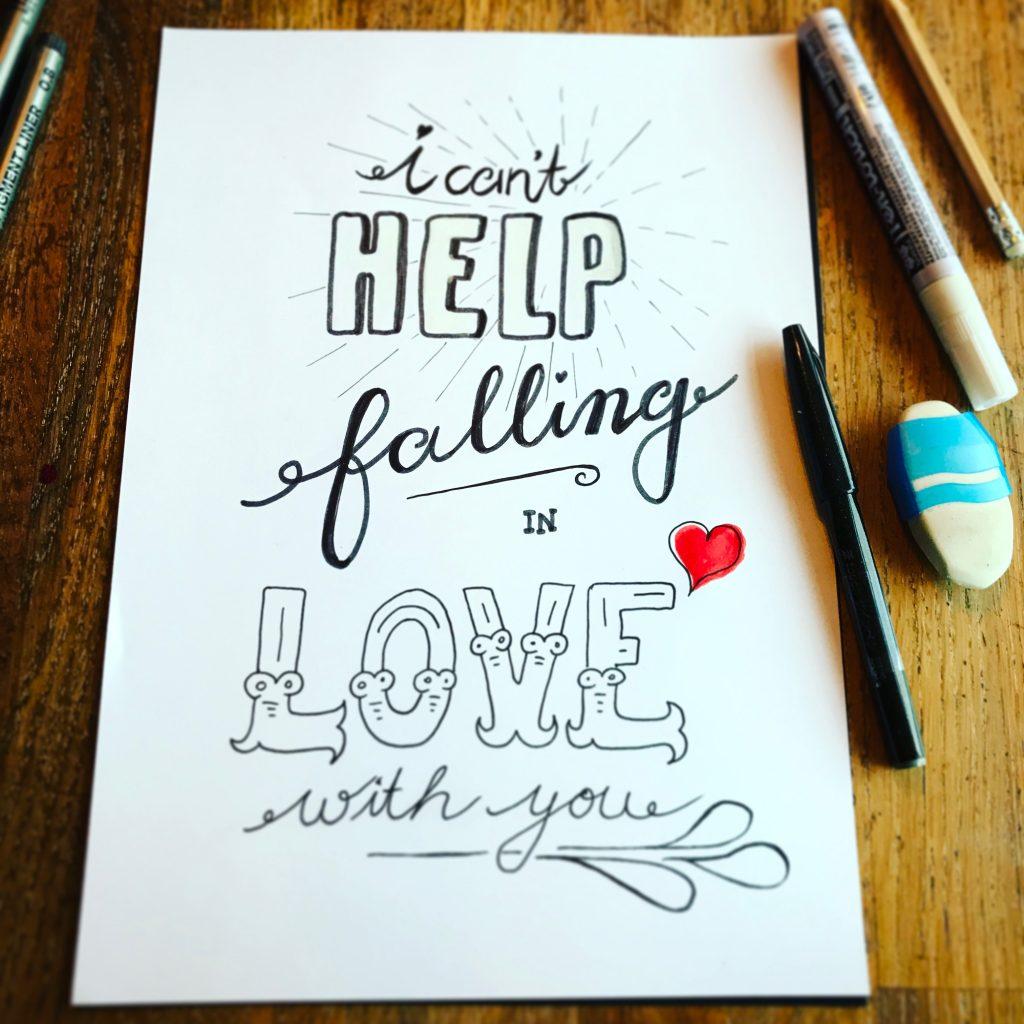 i can't
HELP
falling
IN
LOVE
with you
PIGMENT LINER 0.8